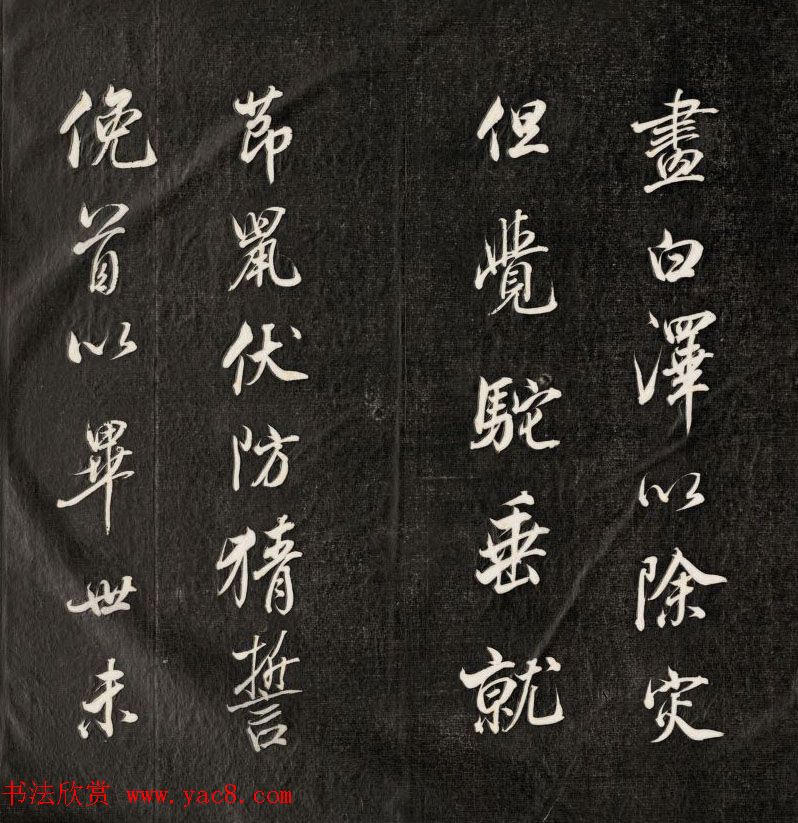 畫白澤以除灾
但覺駝垂就
節鼠伏防猜誓
俛首以畢世未
书法欣赏 www.yac8.com